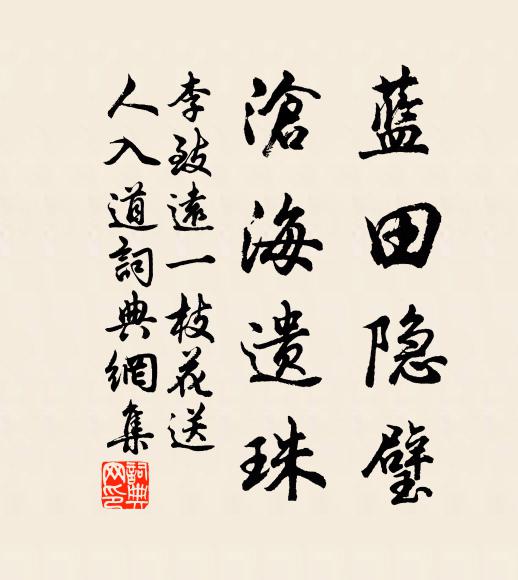 藍田隐璧
滄海遗珠
李致遠一枝花送
人入道詞典網集
詞典网印